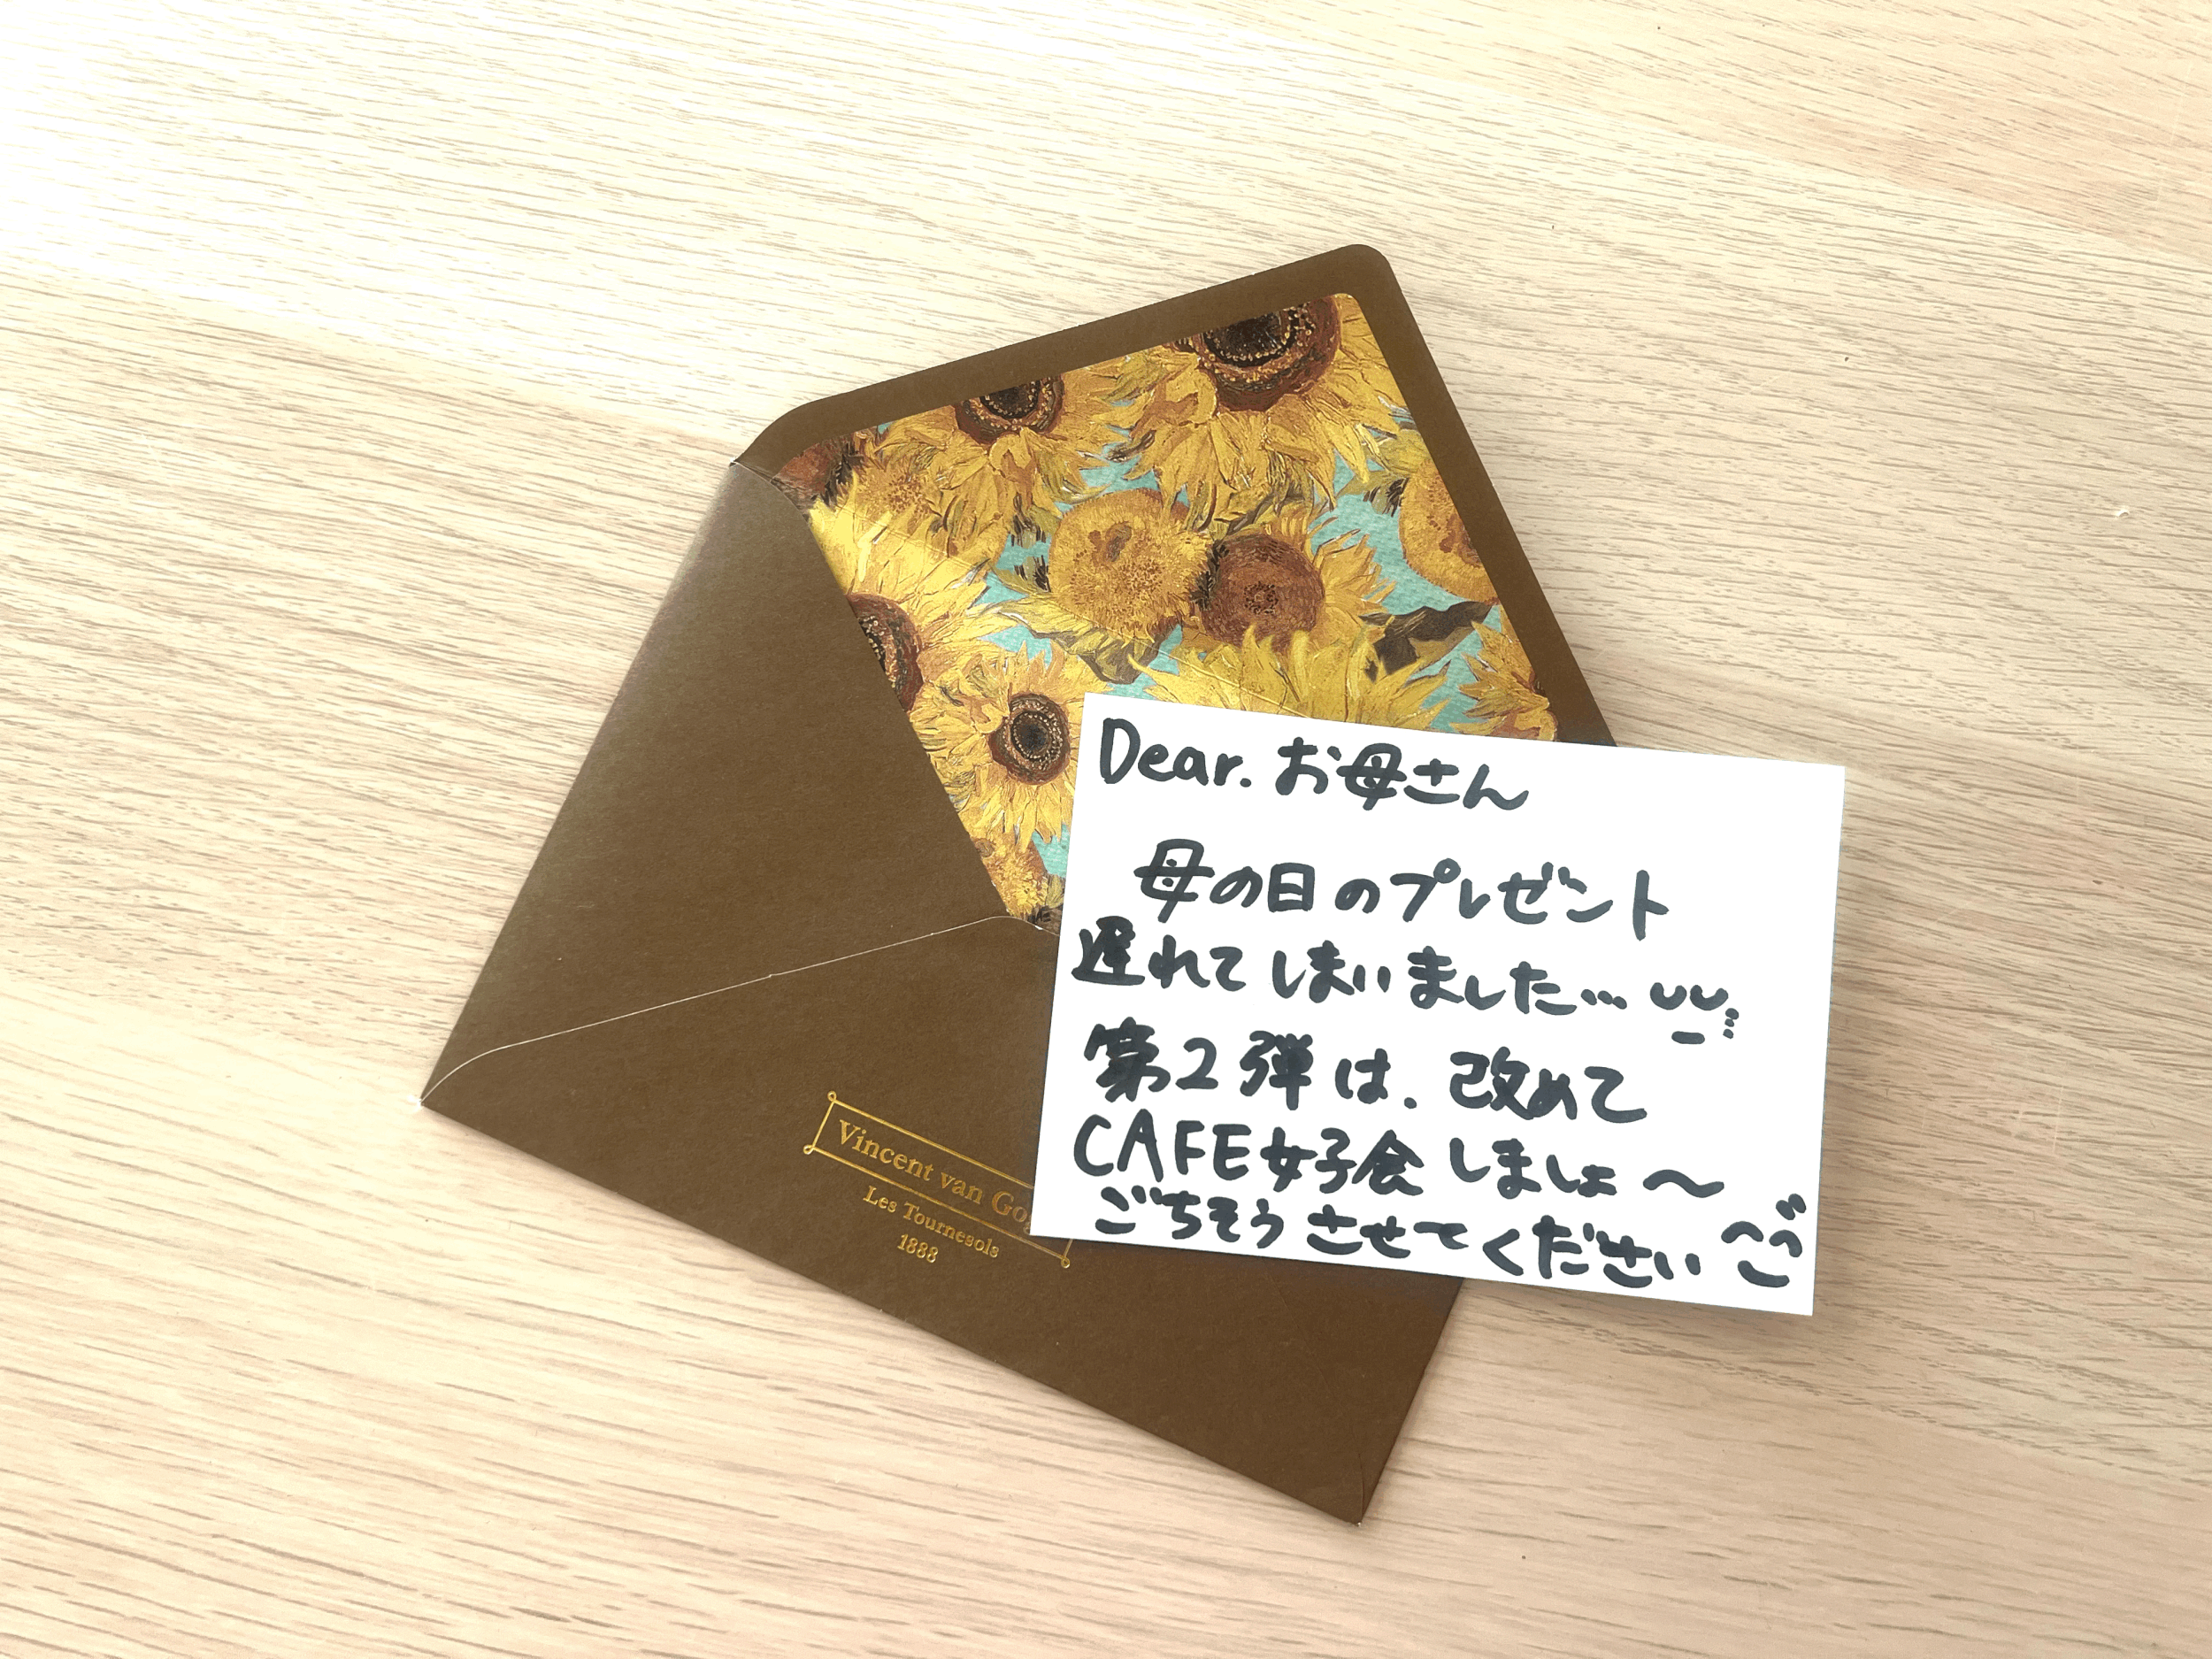 Dear. お母さん
母の日のプレゼント
遅れてしまいました…
第2弾は、改めて
CAFE女子会しましょ〜
ごちそうさせてください
Vincent van Gog
Les Tournesols
1888